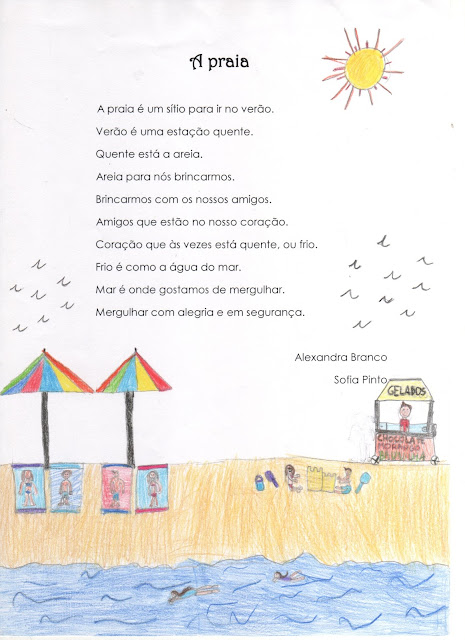 A praia
A praia é um sítio para ir no verão.
Verão é uma estação quente.
Quente está a areia.
Areia para nós brincarmos.
Brincarmos com os nossos amigos.
Amigos que estão no nosso coração.
Coração que às vezes está quente, ou frio.
Frio é como a água do mar.
Mar é onde gostamos de mergulhar.
Mergulhar com alegria e em segurança.
Alexandra Branco
Sofia Pinto
GELADOS
CHOCOLATE
MORANGO
BAUNILHA